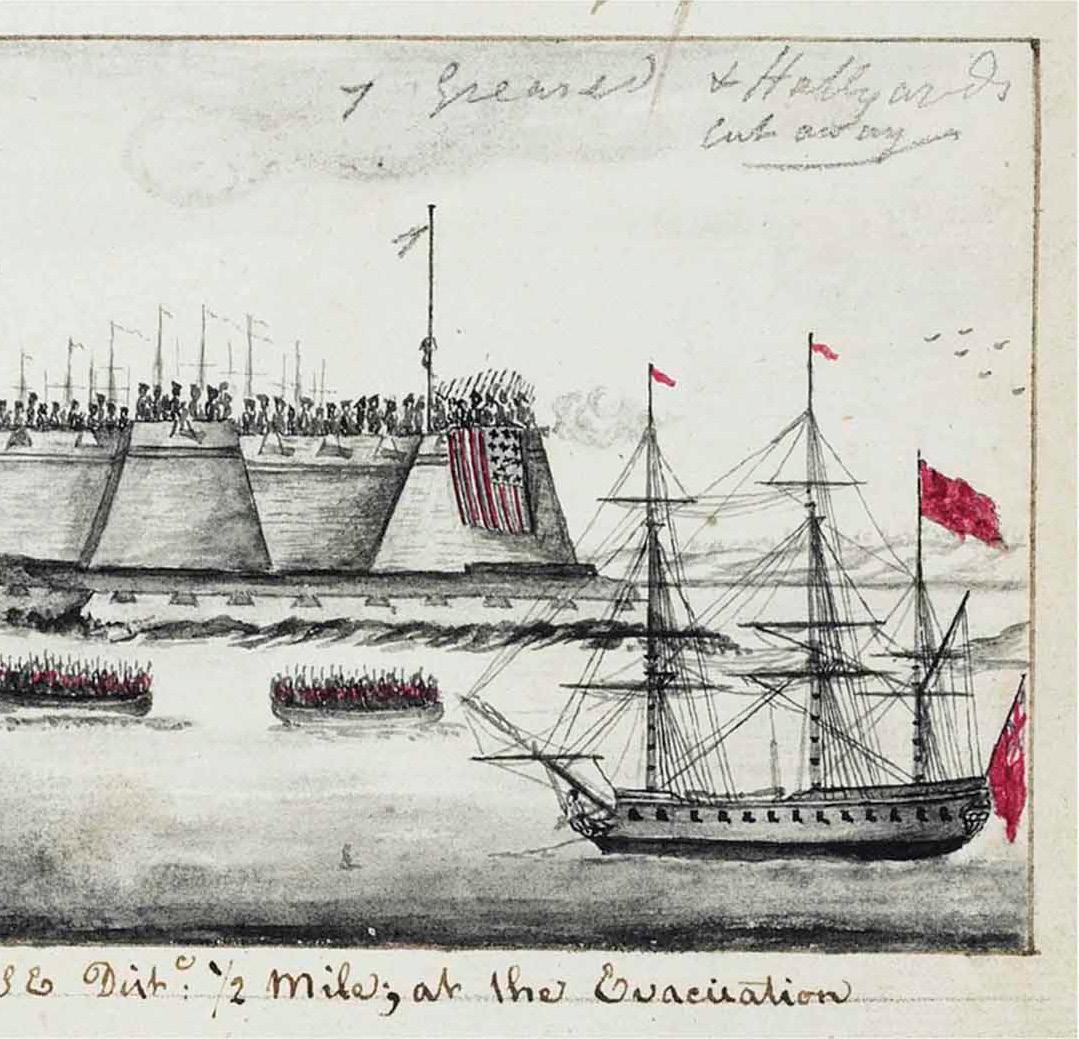 Greased & Hallyards
cut away
SE Distᶜ: ½ Mile; at the Evacuation